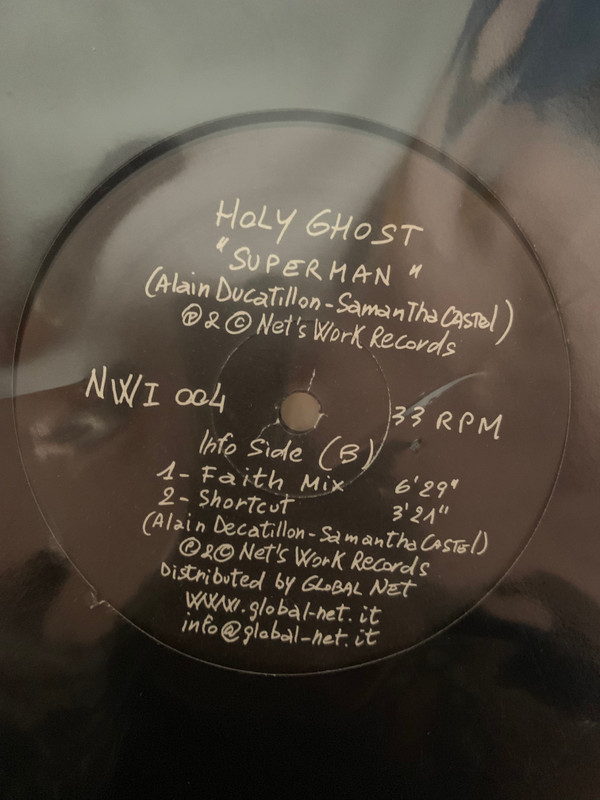 HOLY GHOST
"SUPERMAN"
(Alain Ducatillon-Samantha CASTEL)
℗ & © Net's Work Records
NWI 004
33 RPM
Info Side (B)
1- Faith Mix 6'29"
2- Shortcut 3'21"
(Alain Decatillon-Samantha CASTEL)
℗ & © Net's Work Records
Distributed by GLOBAL NET
WWW.global-net.it
info@global-net.it